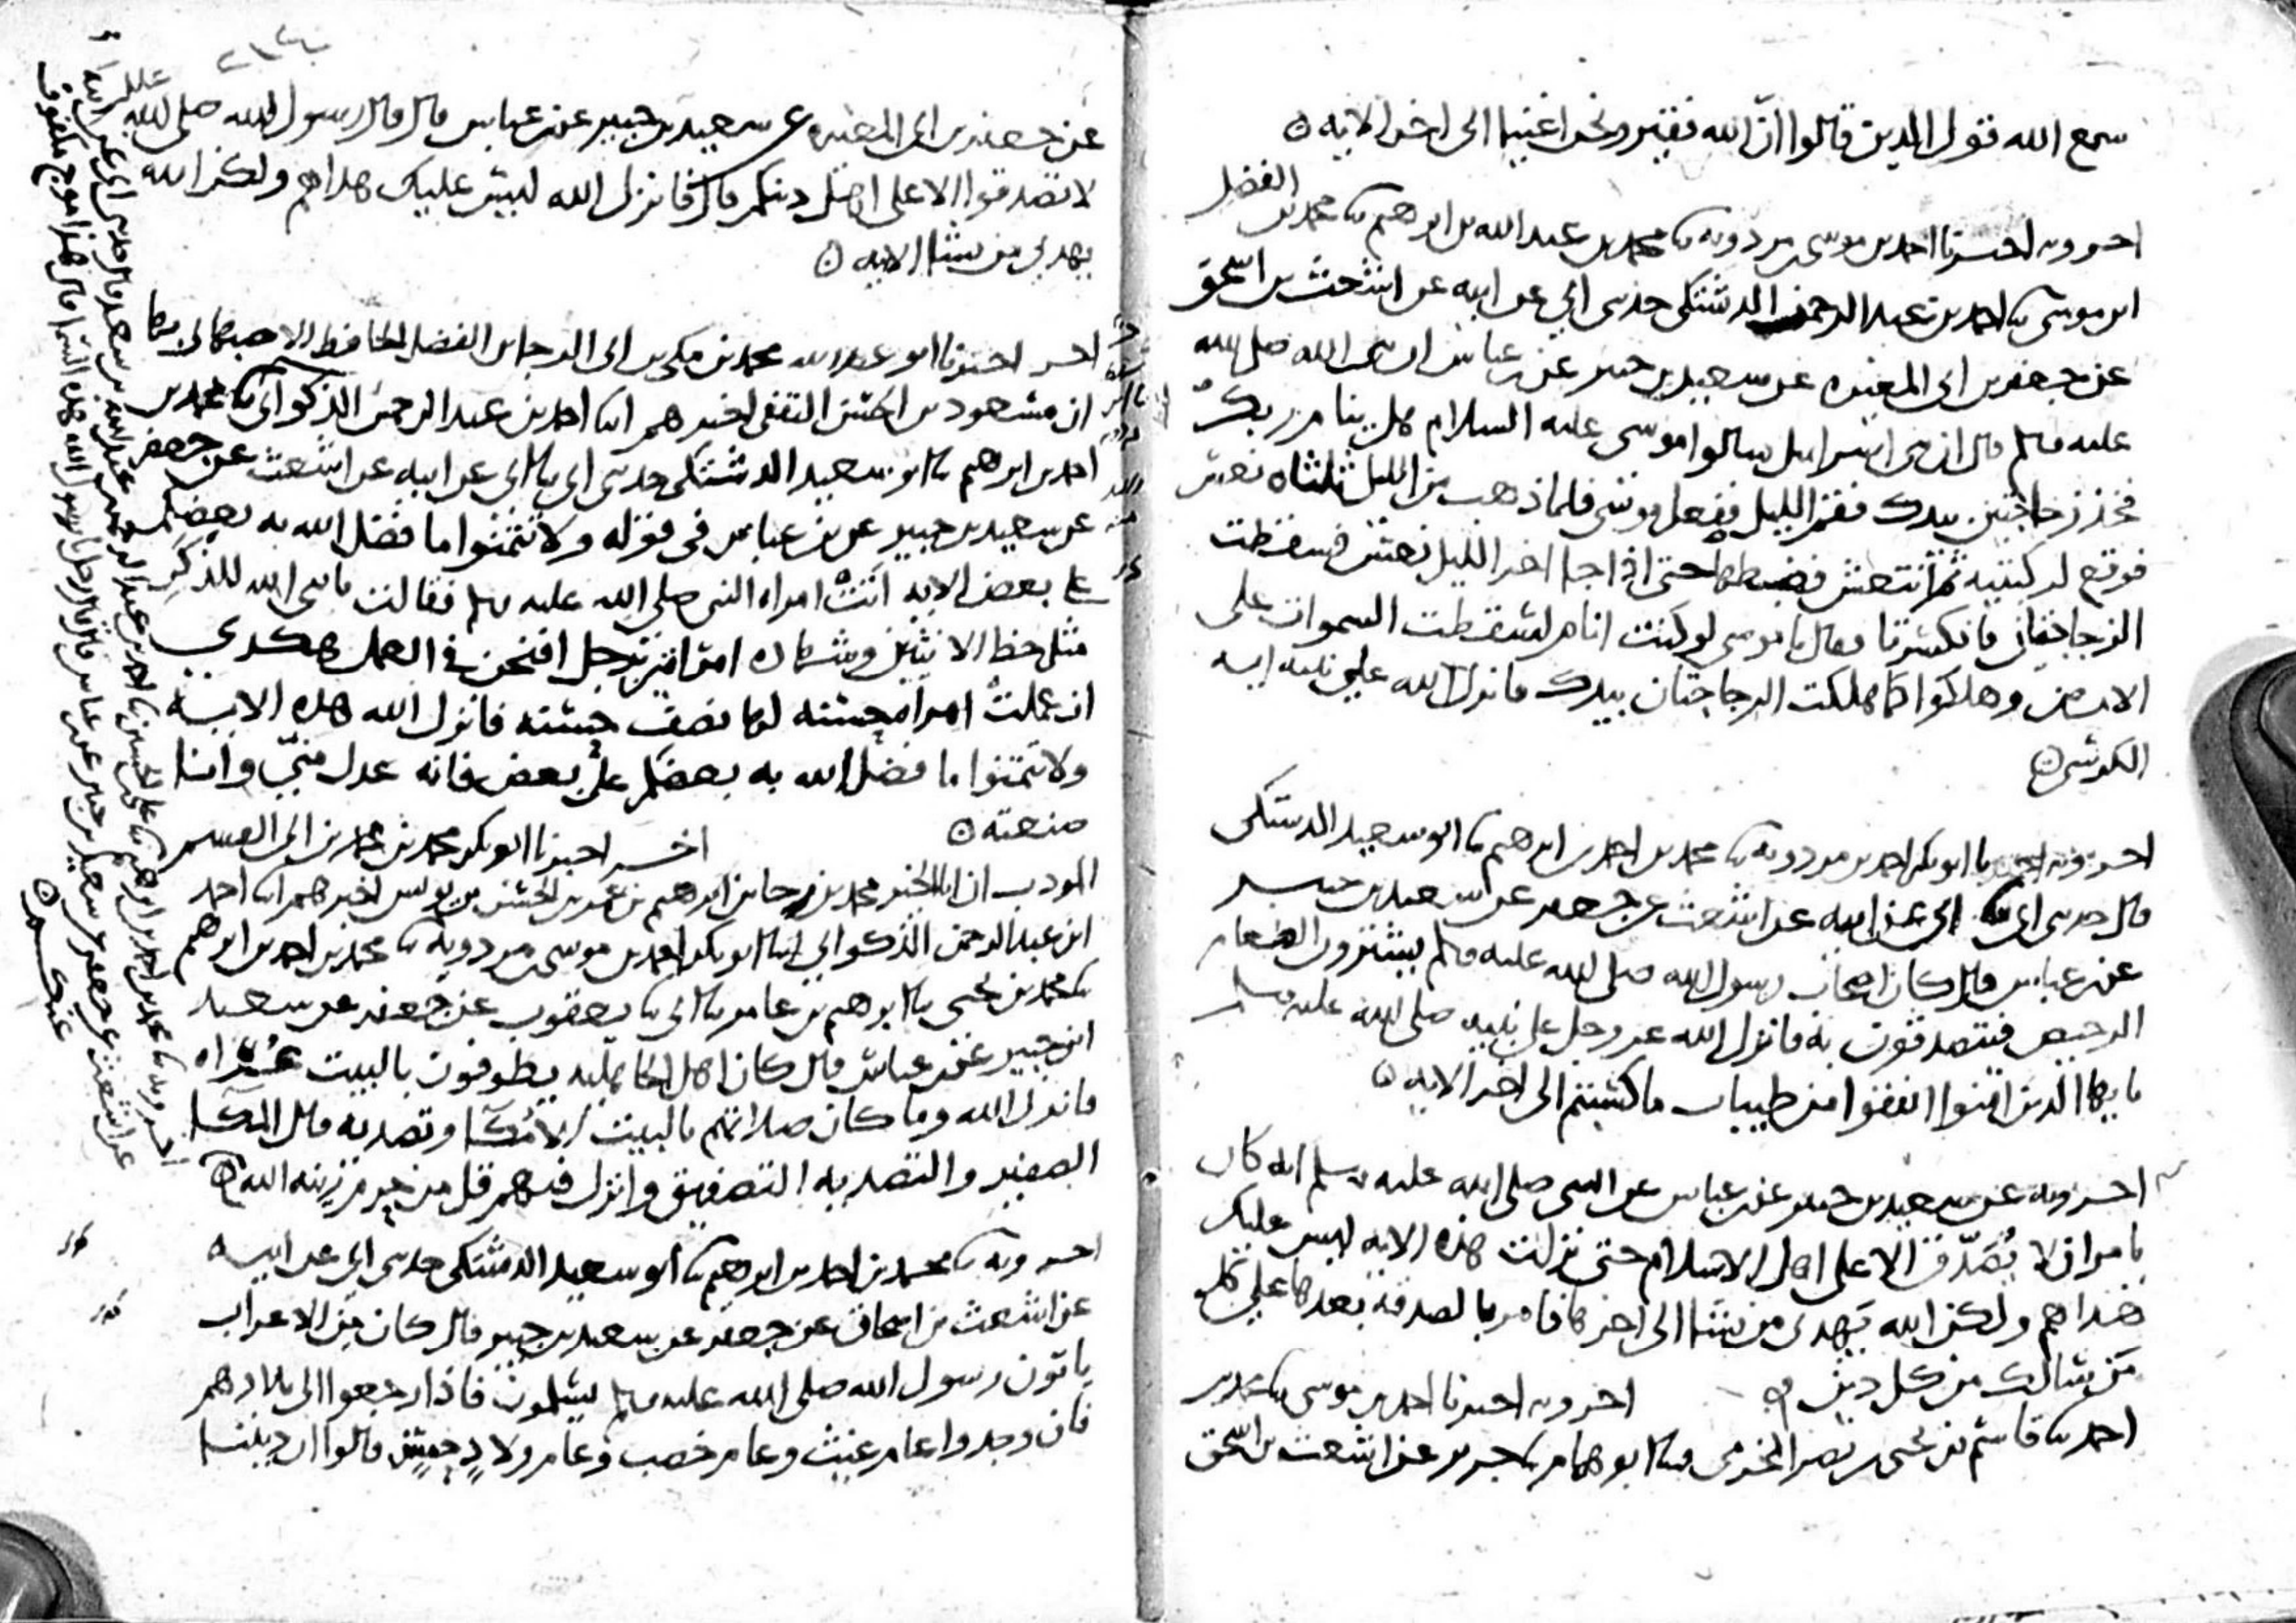 سمع الله قول الذين قالوا ان الله فقير ونحن اغنيا الى اخر الايه
اخبرنا احمد بن موسى بن مردويه نا محمد بن عبد الله بن ابرهيم نا محمد بن الفضل
ابن موسى نا احمد بن عبد الرحمن الدشتكى حدثني ابي عن ابيه عن اشعث بن اسحق
عن جعفر بن ابي المغيره عن سعيد بن جبير عن بن عباس ان النبي الله صلى الله
عليه وسلم قال ان بني اسرايل سالوا موسى عليه السلام هل ينام ربك
فخذ زجاجتين بيدك فقم الليل ففعل موسى فلما ذهب من الليل ثلثاه نعس
فوقع لركبتيه ثم انتعش فضبطها حتى اذا جا اخر الليل نعس فسقطت
الزجاجتان فانكسرتا فقال يا موسى لو كنت انام لسقطت السموات على
الارض وهلكوا كما هلكت الزجاجتان بيدك فانزل الله على نبيه ايه
الكرسي
نا ابو بكر احمد بن مردويه نا محمد بن احمد بن ابرهيم نا ابو سعيد الدشتكى
قال حدثني ابي نا ابي عن ابيه عن اشعث عن جعفر عن سعيد بن جبير
عن بن عباس قال كان اصحاب رسول الله صلى الله عليه وسلم يشترون الطعام
الرخيص فيتصدقون به فانزل الله عز وجل على نبيه صلى الله عليه وسلم
يايها الذين امنوا انفقوا من طيبات ما كسبتم الى اخر الايه
عن سعيد بن جبير عن بن عباس عن النبي صلى الله عليه وسلم انه كان
يامر ان لا يُصَّدق الا على اهل الاسلام حتى نزلت هذه الايه ليس عليك
هداهم ولكن الله يهدى من يشا الى اخرها فامر بالصدقه بعدها على كل
من سالك من كل دين اخبرنا احمد بن موسى نا محمد بن
احمد نا قاسم بن يحيى بن نصر المخرمى نا ابو همام نا جرير عن اشعث بن اسحق
عن جعفر بن ابي المغيره عن سعيد بن جبير عن بن عباس قال قال رسول الله صلى الله
لا تصدقوا الا على اهل دينكم قال فانزل الله ليس عليك هداهم ولكن الله
يهدي من يشا الايه
اخبرنا ابو عبد الله محمد بن مكي بن ابي الرجا بن الفضل الحافظ الاصبهاني بها
ان مسعود بن الحسن الثقفى اخبرهم ابنا احمد بن عبد الرحمن الذكواني نا محمد بن
احمد بن ابرهيم نا ابو سعيد الدشتكى حدثني ابي نا ابي عن ابيه عن اشعث عن جعفر
عن سعيد بن جبير عن بن عباس فى قوله ولا تتمنوا ما فضل الله به بعضكم
على بعض الايه اتت امراه النبي صلى الله عليه وسلم فقالت يا نبي الله للذكر
مثل حظ الانثيين وشهاده امراتين برجل افنحن في العمل هكذى
ان عملت امراه حسنه لها نصف حسنه فانزل الله هذه الايه
ولا تتمنوا ما فضل الله به بعضكم على بعض فانه عدل منّي وانا
صنعته اخبرنا ابو بكر محمد بن محمد بن ابي القسم
المودب ان ابا الخير محمد بن رجا بن ابرهيم بن عمر بن الحسن بن يونس اخبرهم ابنا احمد
ابن عبد الرحمن الذكواني ابنا ابو بكر احمد بن موسى بن مردويه نا محمد بن احمد بن ابرهيم
نا محمد بن يحيى نا ابرهيم بن عامر نا ابي نا يعقوب عن جعفر عن سعيد
ابن جبير عن بن عباس قال كان اهل الجاهليه يطوفون بالبيت عُراه
فانزل الله وما كان صلاتهم بالبيت الا مُكا وتصديه قال المكا
الصفير والتصديه التصفيق وانزل فيهم قل من حرم زينه الله
نا محمد بن احمد بن ابرهيم نا ابو سعيد الدشتكى حدثني ابي عن ابيه
عن اشعث بن اسحاق عن جعفر عن سعيد بن جبير قال كان من الاعراب
ياتون رسول الله صلى الله عليه وسلم يسلمون فاذا رجعوا الى بلادهم
فان وجدوا عام غيث وعام خصب وعام ولاد حسن قالوا ان ديننا